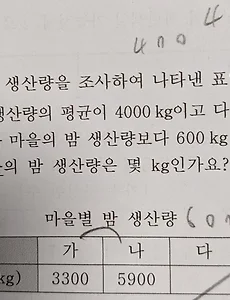 4
400
생산량을 조사하여 나타낸 표
생산량의 평균이 4000 kg이고 다
마을의 밤 생산량보다 600 kg
의 밤 생산량은 몇 kg인가요?
마을별 밤 생산량
가 나 다
kg) 3300 5900